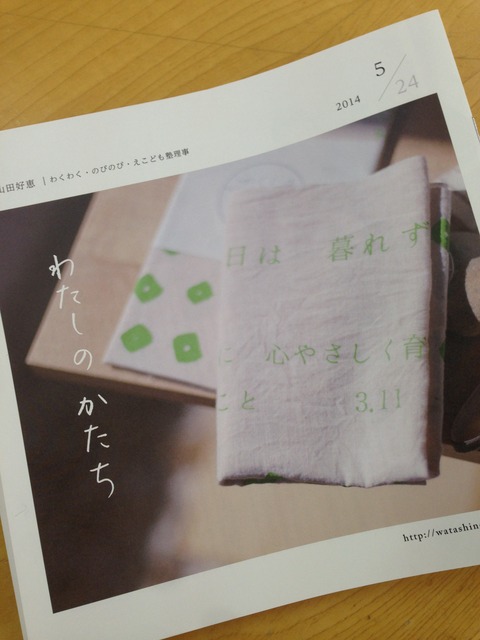 2014 5/24
山田好恵 | わくわく・のびのび・えこども塾理事
わたしのかたち
日は 暮れず
に 心やさしく育
こと 3.11
http://watashin